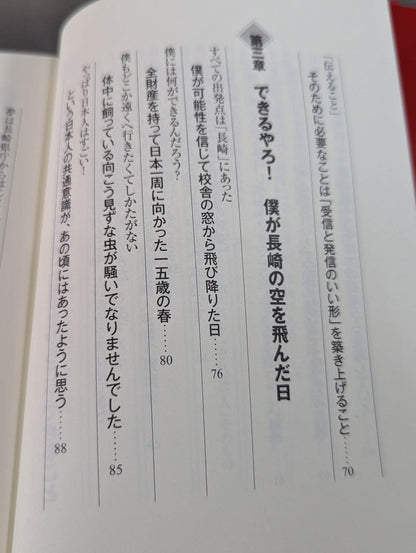 「伝えること」
そのために必要なことは「受信と発信のいい形」を築き上げること……70
第三章 できるやろ! 僕が長崎の空を飛んだ日
すべての出発点は「長崎」にあった
僕が可能性を信じて校舎の窓から飛び降りた日……76
僕には何ができるんだろう?
全財産を持って日本一周に向かった一五歳の春……80
僕もどこか遠くへ行きたくてしかたがない
体中に飼っている向こう見ずな虫が騒いでなりませんでした……85
やっぱり日本人はすごい!
という日本人の共通意識が、あの頃にはあったように思う……88